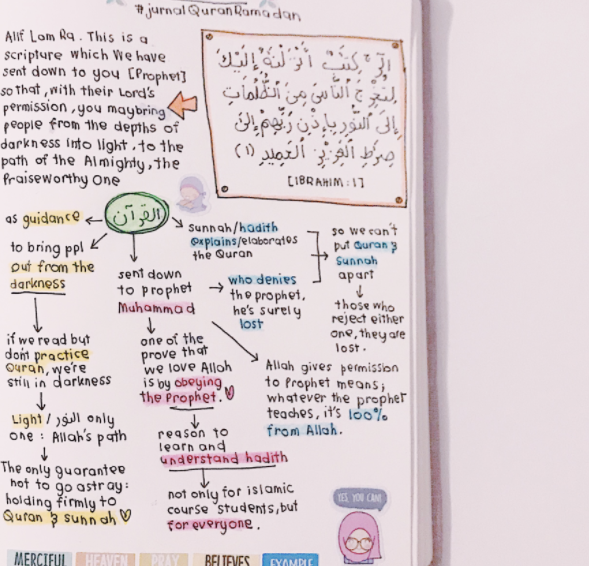 #jurnalQuranRamadan
Alif Lam Ra. This is a
scripture which We have
sent down to you [Prophet]
so that, with their Lord's
permission, you may bring
people from the depths of
darkness into light, to the
path of the Almighty, the
Praiseworthy One
الٓرۚ كِتَٰبٌ أَنزَلۡنَٰهُ إِلَيۡكَ
لِتُخۡرِجَ ٱلنَّاسَ مِنَ ٱلظُّلُمَاتِ
إِلَى ٱلنُّورِ بِإِذۡنِ رَبِّهِمۡ إِلَىٰ
صِرَٰطِ ٱلۡعَزِيزِ ٱلۡحَمِيدِ (١)
[IBRAHIM:1]
القرآن
as guidance
to bring ppl
out from the
darkness
if we read but
don't practice
Quran, we're
still in darkness
Light / النور only
one : Allah's path
The only guarantee
not to go astray:
holding firmly to
Quran & sunnah
sent down
to prophet
Muhammad
one of the
prove that
we love Allah
is by obeying
the Prophet.
reason to
learn and
understand hadith
not only for islamic
course students, but
for everyone.
sunnah/hadith
explains/elaborates
the Quran
who denies
the prophet,
he's surely
lost
so we can't
put Quran &
Sunnah
apart
those who
reject either
one, they are
lost.
Allah gives permission
to Prophet means;
whatever the prophet
teaches, it's 100%
from Allah.
YES, YOU CAN!
MERCIFUL
HEAVEN
PRAY
BELIEVES
EXAMPLE